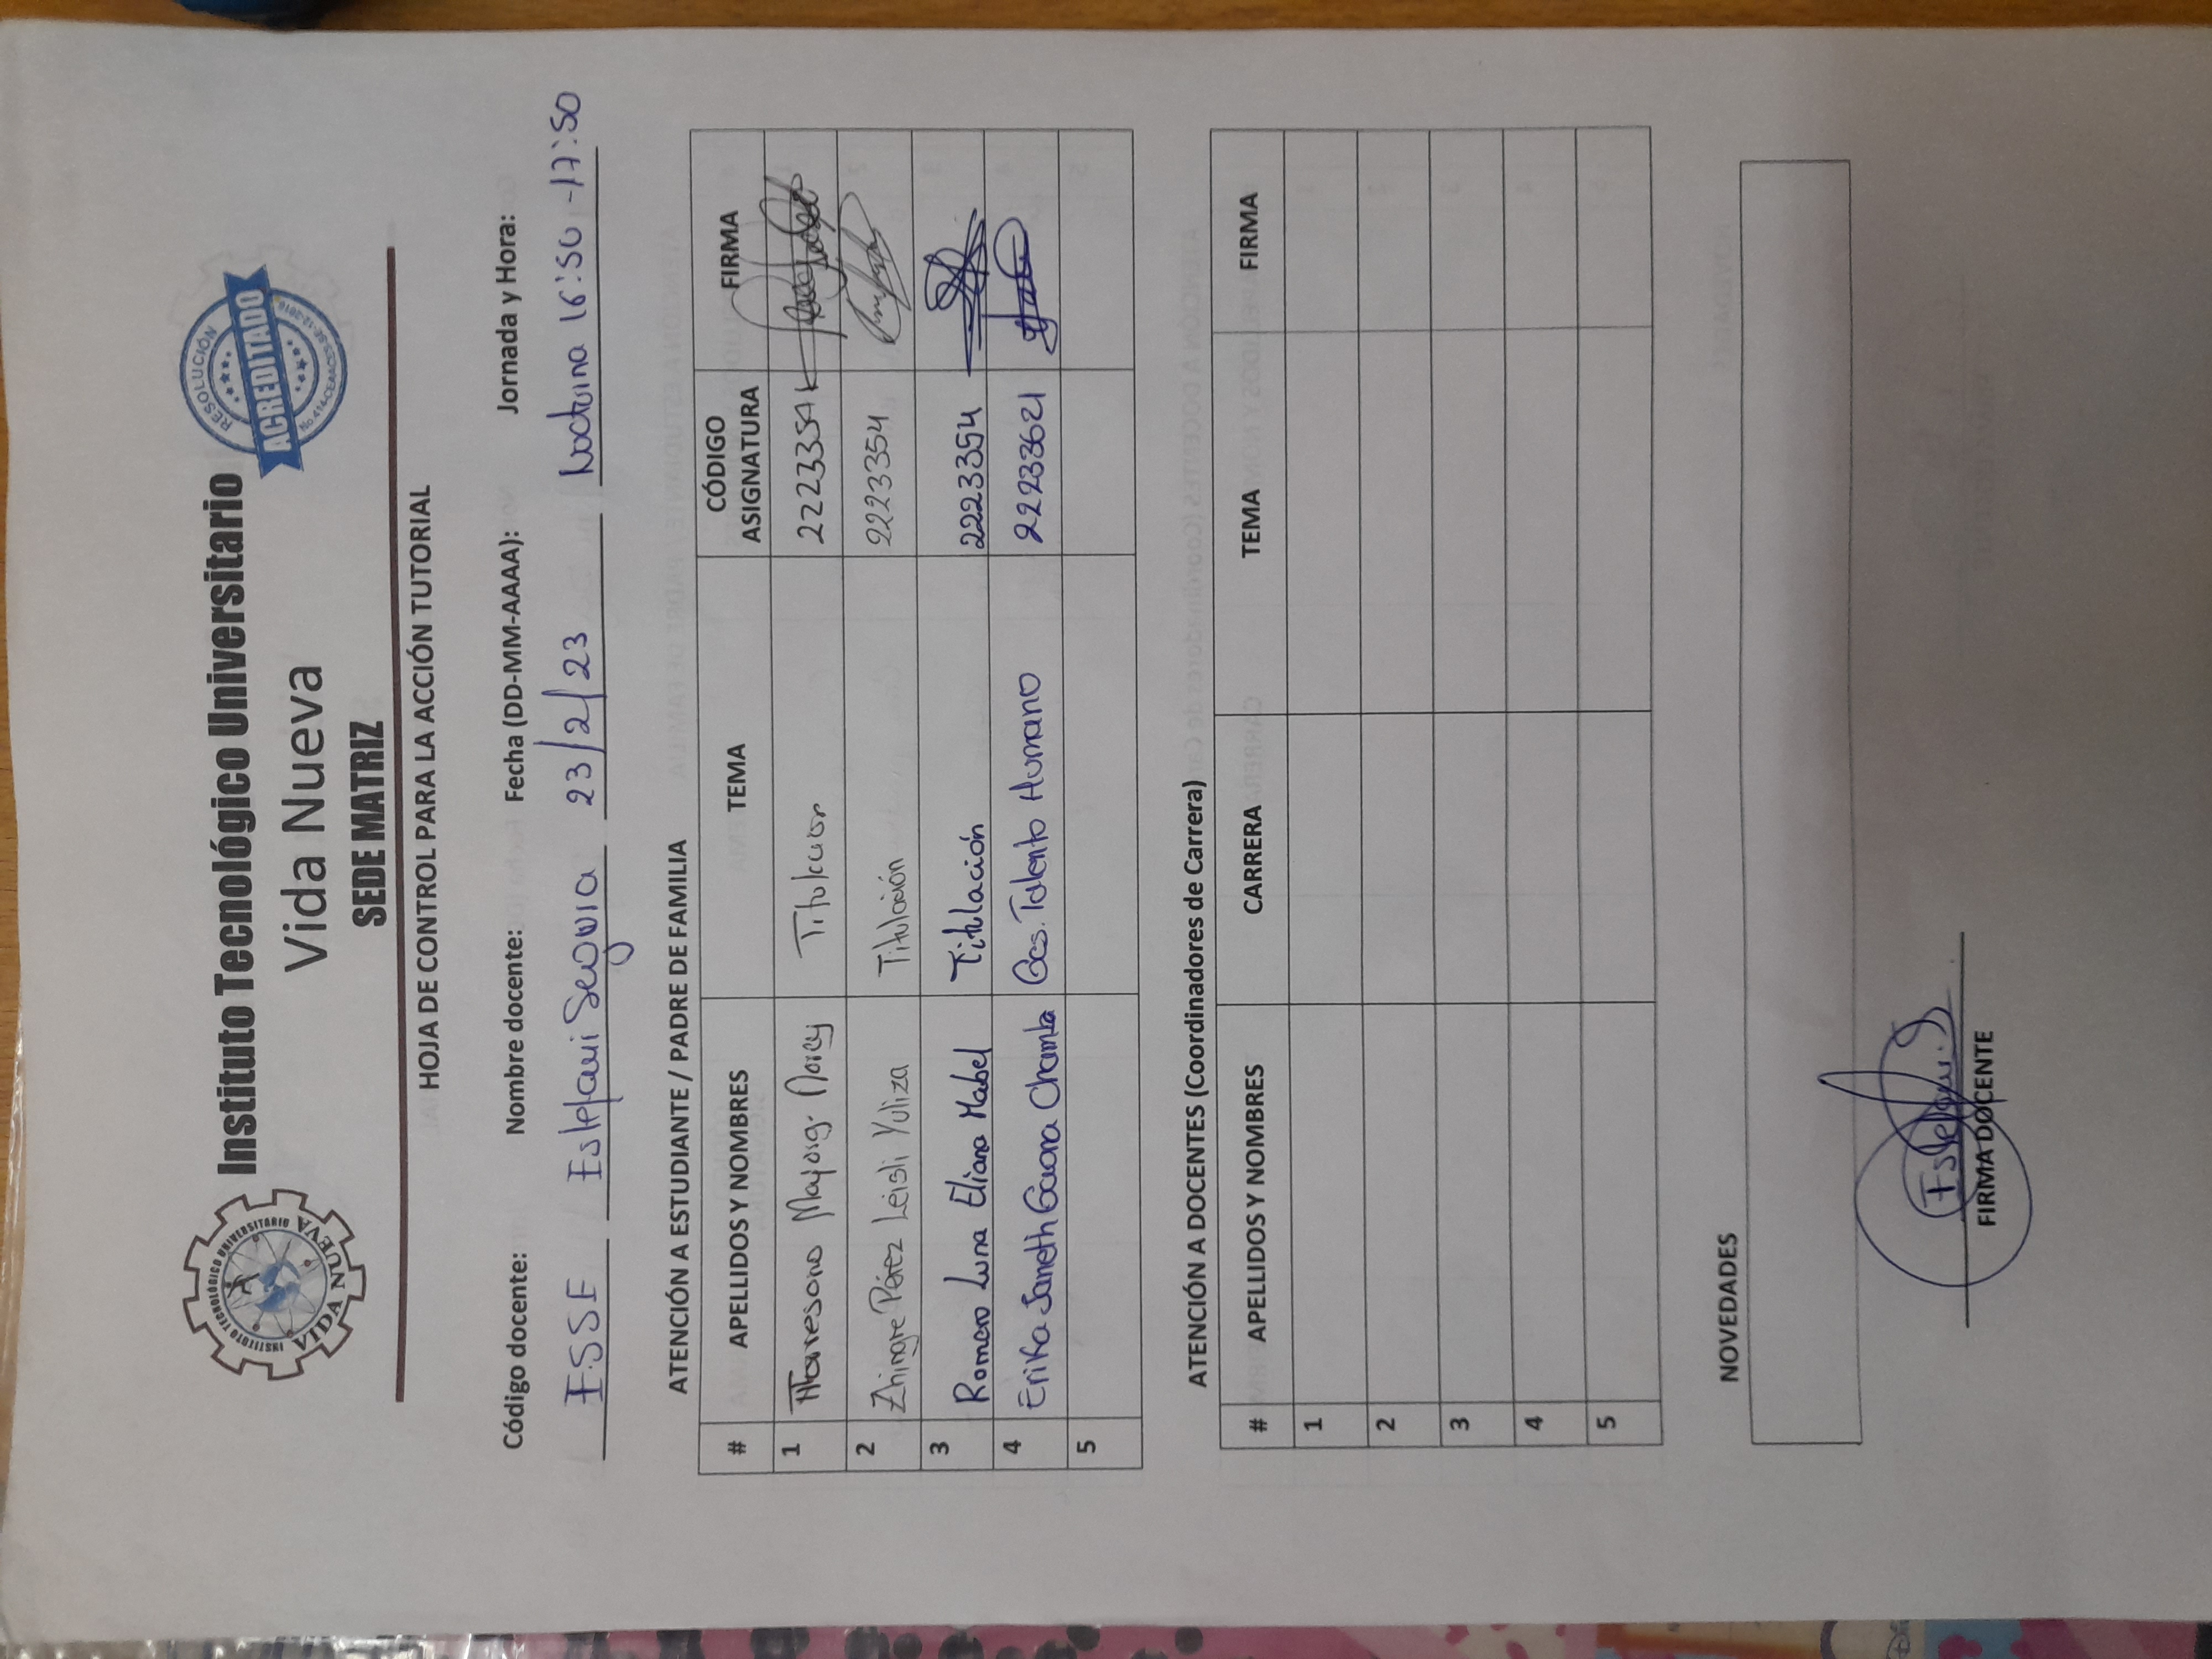 INSTITUTO TECNOLÓGICO UNIVERSITARIO
VIDA NUEVA
Instituto Tecnológico Universitario
Vida Nueva
SEDE MATRIZ
RESOLUCIÓN
ACREDITADO
No.414-CEAACES-SE-12-2016
HOJA DE CONTROL PARA LA ACCIÓN TUTORIAL
Código docente: Nombre docente: Fecha (DD-MM-AAAA): Jornada y Hora:
ESSE Estefani Segovia 23/2/23 Nocturna 16:50 -17:50
ATENCIÓN A ESTUDIANTE / PADRE DE FAMILIA
# APELLIDOS Y NOMBRES TEMA CÓDIGO ASIGNATURA FIRMA
1 Titulacion 2223354
2 Zhingre Pérez Leisli Yuliza Titulación 2223354
3 Romero Luna Eliana Mabel Titulación 2223354
4 Erika Janeth Gaona Chamba Ges. Talento Humano 22233621
5
ATENCIÓN A DOCENTES (Coordinadores de Carrera)
# APELLIDOS Y NOMBRES CARRERA TEMA FIRMA
1
2
3
4
5
NOVEDADES
Estefani.S
FIRMA DOCENTE